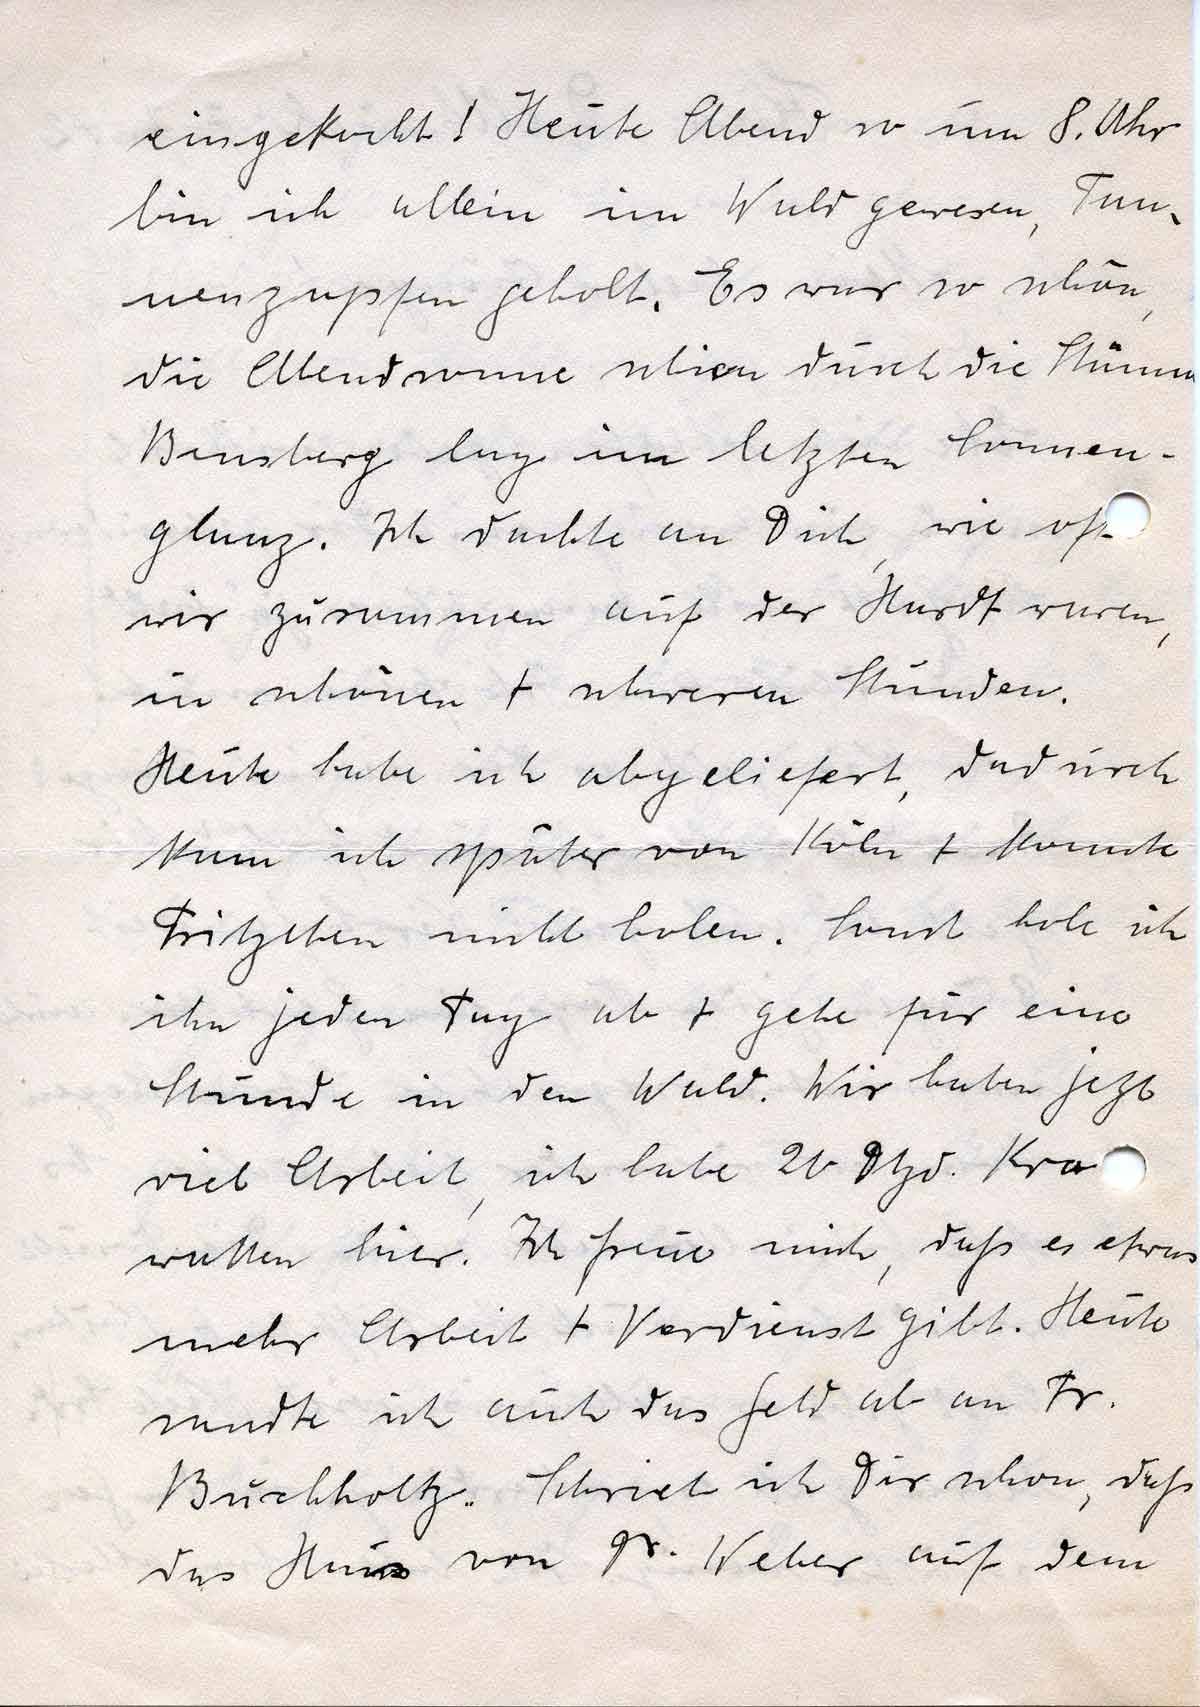 eingekocht! Heute Abend so um 8. Uhr
bin ich allein im Wald gewesen, Tan-
nenzapfen geholt. Es war so schön,
die Abendsonne schien durch die Stämme
Bensberg lag im letzten Sonnen-
glanz. Ich dachte an Dich, wie oft
wir zusammen auf der Hardt waren,
in schönen + schweren Stunden.
Heute habe ich abgeliefert, dadurch
kam ich später von Köln + konnte
Fritzchen nicht holen. Sonst hole ich
ihn jeden Tag ab + gehe für eine
Stunde in den Wald. Wir haben jetzt
viel Arbeit, ich habe 26 Dtzd. Kra
watten hier. Ich freue mich, daß es etwas
mehr Arbeit + Verdienst gibt. Heute
sandte ich auch das Geld ab an Fr.
Buchholtz. Schrieb ich Dir schon, daß
das Haus von Weber auf dem